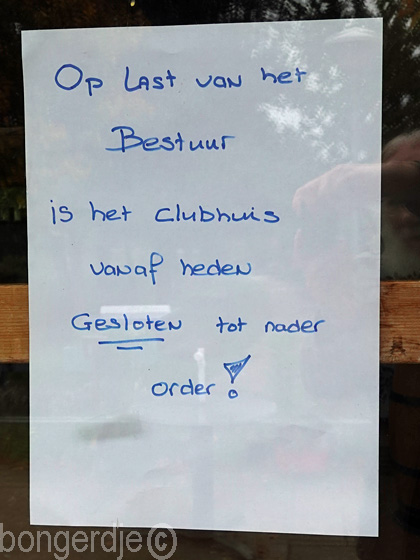 Op Last van het
Bestuur
is het clubhuis
vanaf heden
Gesloten tot nader
order!
bongerdje©